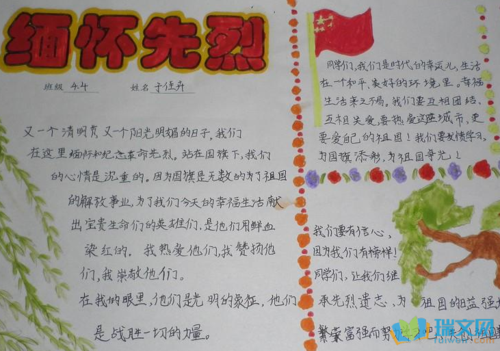 缅怀先烈
班级 4.4 姓名
又一个清明节又一个阳光明媚的日子,我们
在这里缅怀和纪念革命先烈,站在国旗下,我们
的心情是沉重的。因为国旗是无数的为了祖国
的解放事业,为了我们今天的幸福生活献
出宝贵生命们的英雄们,是他们用鲜血
染红的。我热爱他们,我赞颂他
们,我崇敬他们。
在我的眼里,他们是光明的象征,他们
是战胜一切的力量。
同学们,我们是时代的幸运儿,生活
在一个和平、美好的环境里。幸福
生活来之不易,我们要互相团结,
五相关爱,要热爱这座城市,更
要爱自己的祖国!我们要发愤学习,
为国旗添彩,为祖国争光!
我们要有信心,
因为我们有榜样!
同学们,让我们继
承先烈遗志,为祖国的日益强
繁荣富强而努
瑞文网
ruiwen.com